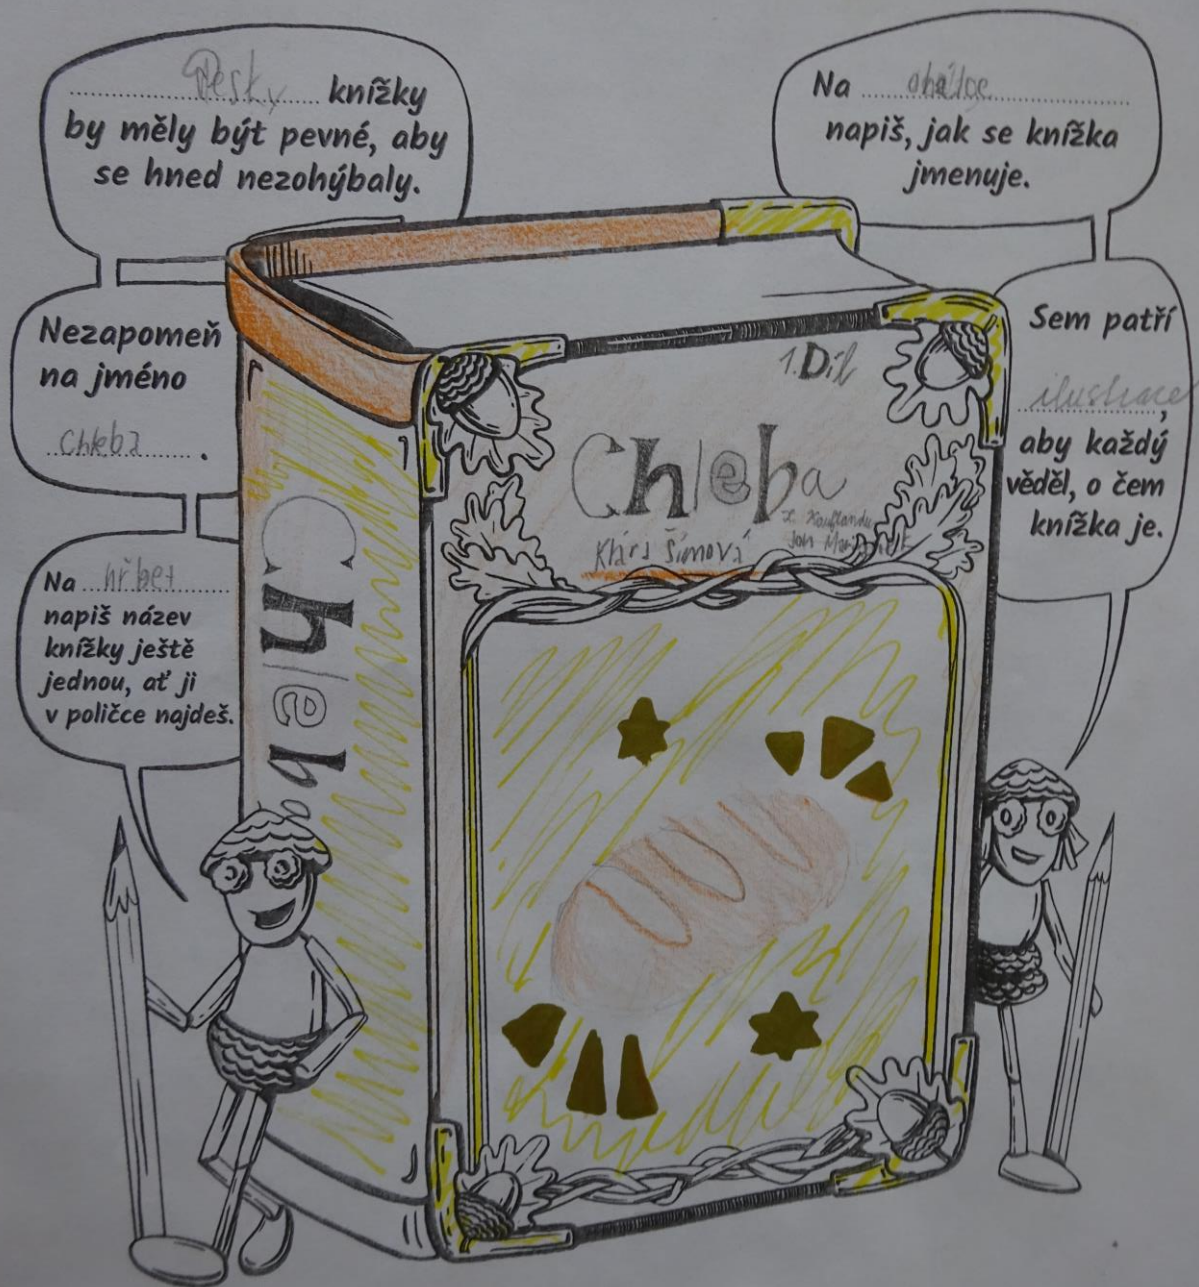 Desky knížky
by měly být pevné, aby
se hned nezohýbaly.
Na obálce
napiš, jak se knížka
jmenuje.
Nezapomeň
na jméno
Chleba.
Sem patří
ilustrace,
aby každý
věděl, o čem
knížka je.
Na hřbet
napiš název
knížky ještě
jednou, ať ji
v poličce najdeš.
1. Díl
Chleba
z Kauflandu
Klára Šimová
Jan
Chleba